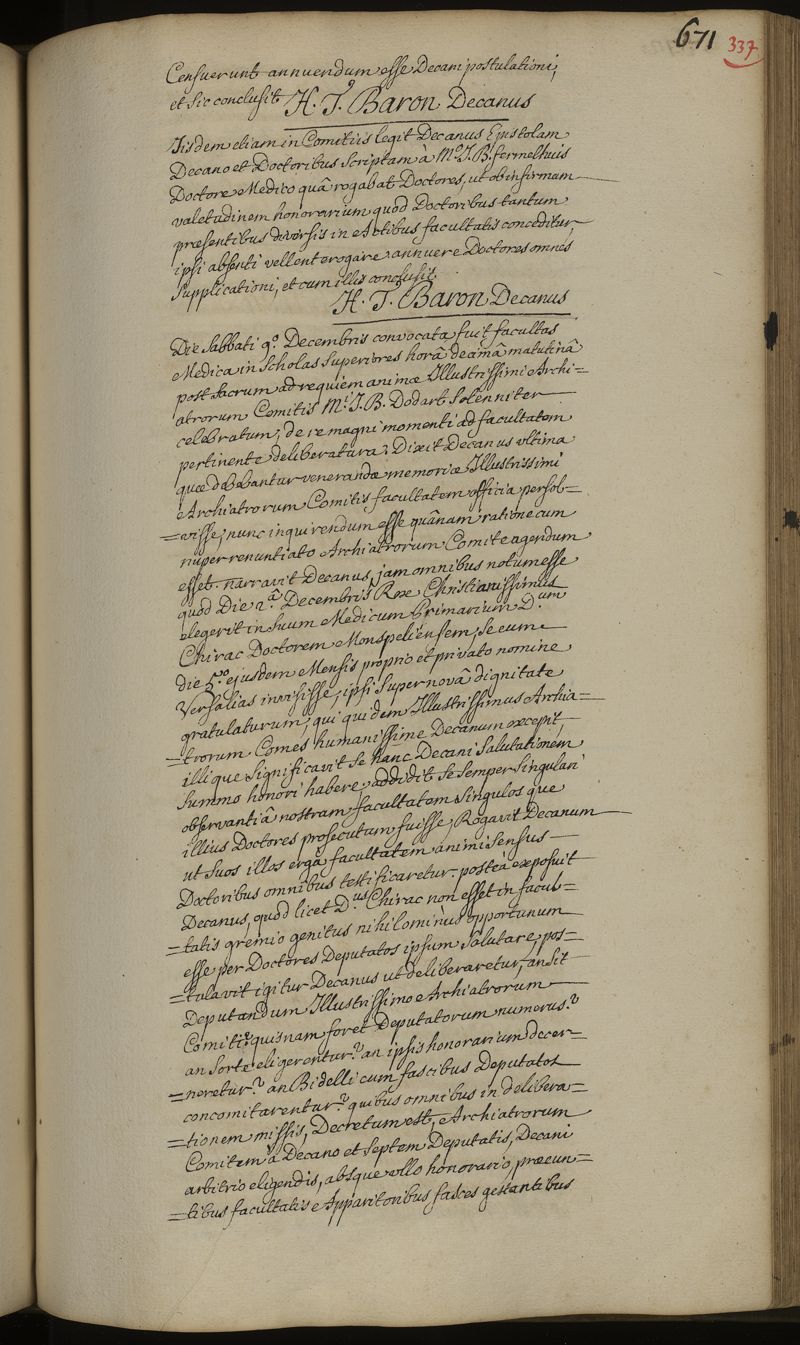 671 337
Censuerunt annuendum esse Decani postulationi,
et sic conclusit H. T. Baron Decanus
Iisdem etiam in Comitiis legit Decanus Epistolam
Decano et Doctoribus scriptam à M.º J. B. fermelhuis
Doctore Medico quâ rogabat Doctores, ut ob infirmam
valetudinem honorarium quod Doctoribus tantum
præsentibus diversis in Actibus facultatis conceditur,
ipsi absenti vellent erogare annuere Doctores omnes
supplicationi, et cum illis conclusit
H. T. Baron Decanus
Die Sabbati 9.º Decembris convocata fuit facultas
Medica in Scholas Superiores horâ decimâ matutinâ
post sacrum ad requiem animæ Illustrissimi Archi=
atrorum Comitis M.i J. B. Dodart solenniter
celebratum, de re magni momenti ad facultatem
pertinente deliberatura. Dixit Decanus ultima
quæ debebantur venerandæ memoriæ Illustrissimi
Archiatrorum Comitis facultatem officia persol=
=visse, nunc inquirendum esse quânam ratione cum
nuper renuntiato Archiatrorum Comite agendum
esset. narravit Decanus, jam omnibus notum esse
quod Die 2.â Decembris Rex Christianissimus
elegerit in suum Medicum Primarium D.um
Chirac Doctorem Monspeliensem, se eum
die 5.to ejusdem Mensis proprio et privato nomine
Versalias invisisse, ipsi super novâ dignitate
gratulaturum, qui quidem Illustrissimus Archia=
=trorum Comes humanissime Decanum excepit
illique significavit se hanc Decani salutationem
summo honori habere, addidit se semper singulari
observantiâ nostram facultatem singulosque
illius Doctores prosecutum fuisse, Rogavit Decanum
ut suos illos ergà facultatem animi sensus
Doctoribus omnibus testificaretur. posteà exposuit
Decanus, quod licet D.us Chirac non esset in facul=
=tatis gremio genitus nihilominùs opportunum
esse per Doctores Deputatos ipsum salutare, pos=
=tulavit igitur Decanus ut deliberaretur, an sit
Deputandum Illustrissimo Archiatrorum
Comiti? quisnam foret Deputatorum numerus?
an sorte eligerentur? an ipsis honorarium decer=
=neretur? an Bidelli cum fascibus Deputatos
concomitarentur? quibus omnibus in delibera=
=tionem missis, Decretum est, Archiatrorum
Comitem à Decano et septem Deputatis, Decani
arbitrio eligendis, absque ullo honorario, præeun=
=tibus facultatis Apparitoribus fasces gestantibus